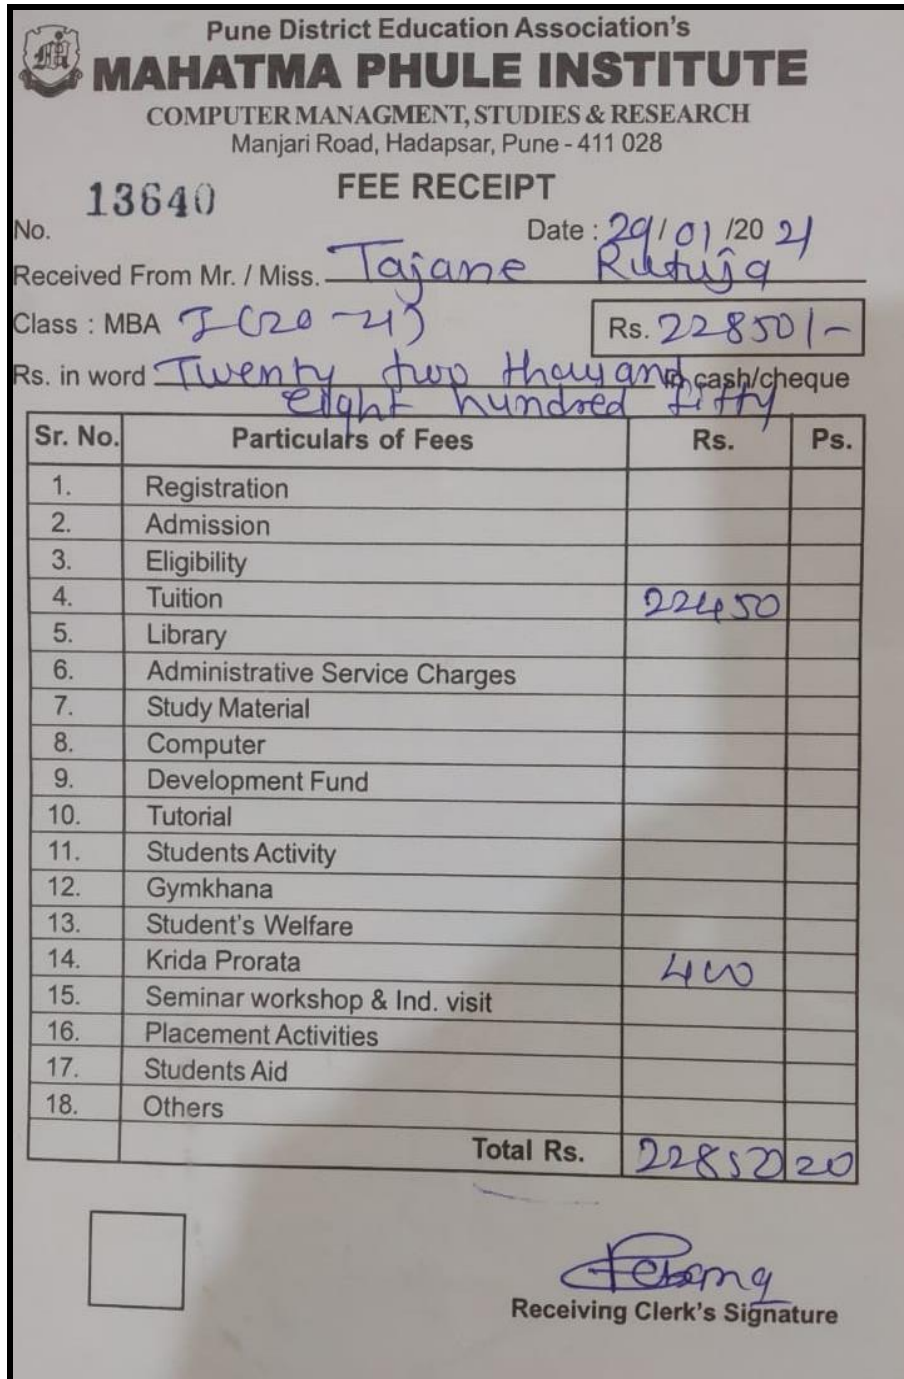 Pune District Education Association's
MAHATMA PHULE INSTITUTE
COMPUTER MANAGMENT, STUDIES & RESEARCH
Manjari Road, Hadapsar, Pune - 411 028
13640 FEE RECEIPT
No. Date : 29/01/2021
Received From Mr. / Miss. Tajane Rutuja
Class : MBA I (20-21) Rs. 22850/-
Rs. in word Twenty two thousand in cash/cheque
eight hundred fifty
Sr. No. Particulars of Fees Rs. Ps.
1. Registration
2. Admission
3. Eligibility
4. Tuition 22450
5. Library
6. Administrative Service Charges
7. Study Material
8. Computer
9. Development Fund
10. Tutorial
11. Students Activity
12. Gymkhana
13. Student's Welfare
14. Krida Prorata 400
15. Seminar workshop & Ind. visit
16. Placement Activities
17. Students Aid
18. Others
Total Rs. 22850
Receiving Clerk's Signature